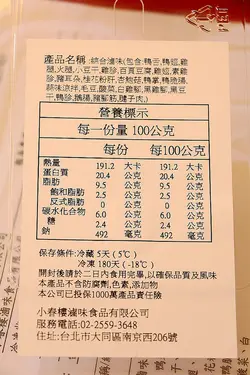 產品名稱:綜合滷味(包含:鴨舌,鴨翅,雞
翅,火腿,小豆干,雞胗,百頁豆腐,雞蛋,素雞
胗,豬耳朵,桂花粉肝,杏鮑菇,鴨掌,脆雞腸,
蒜味涼拌,毛豆,酸菜,白雞腳,黑雞腳,黑豆
干,鴨胗,鵝腸,豬腳筋,腱子肉)
營養標示
每一份量 100公克
每份 每100公克
熱量 191.2 大卡 191.2 大卡
蛋白質 20.4 公克 20.4 公克
脂肪 9.5 公克 9.5 公克
飽和脂肪 2.5 公克 2.5 公克
反式脂肪 0 公克 0 公克
碳水化合物 6.0 公克 6.0 公克
糖 2.4 公克 2.4 公克
鈉 492 毫克 492 毫克
保存條件:冷藏 5天 (5°C)
冷凍 180天 (-18°C)
開封後請於二日內食用完畢,以確保品質及風味
本產品不含防腐劑,色素,添加物
本公司已投保1000萬產品責任險
小春樓滷味食品有限公司
服務電話:02-2559-3648
住址:台北市大同區南京西206號